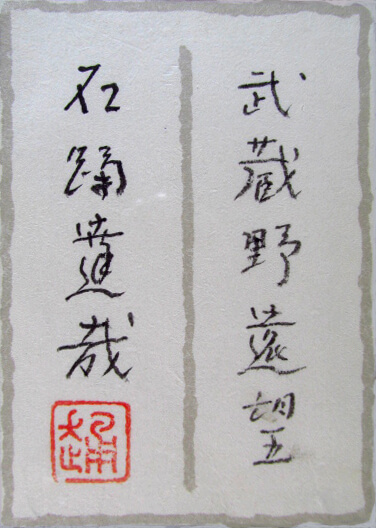 武蔵野遠望
石踊達哉